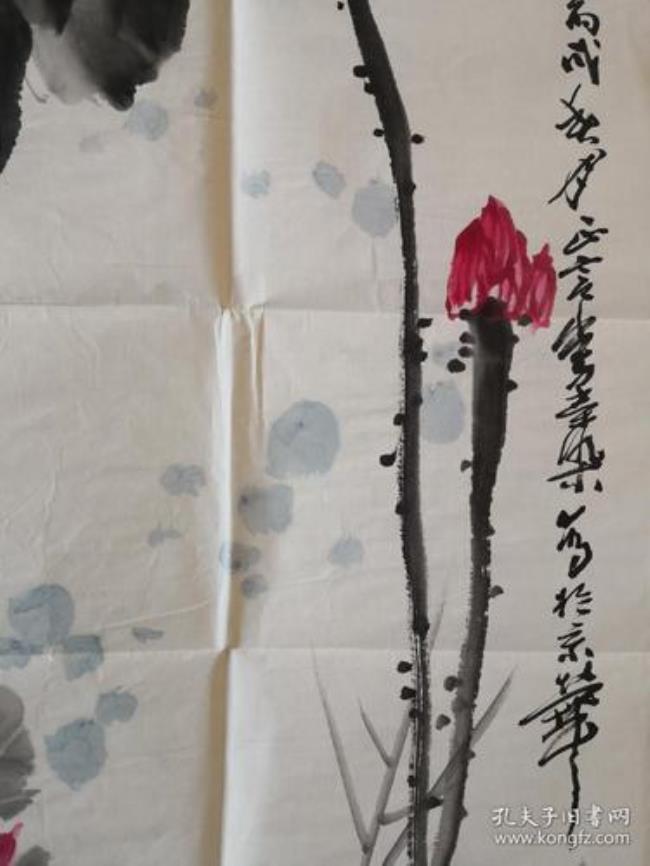 丙戌秋月正言堂李墨写於京華
孔夫子旧书网
www.kongfz.com